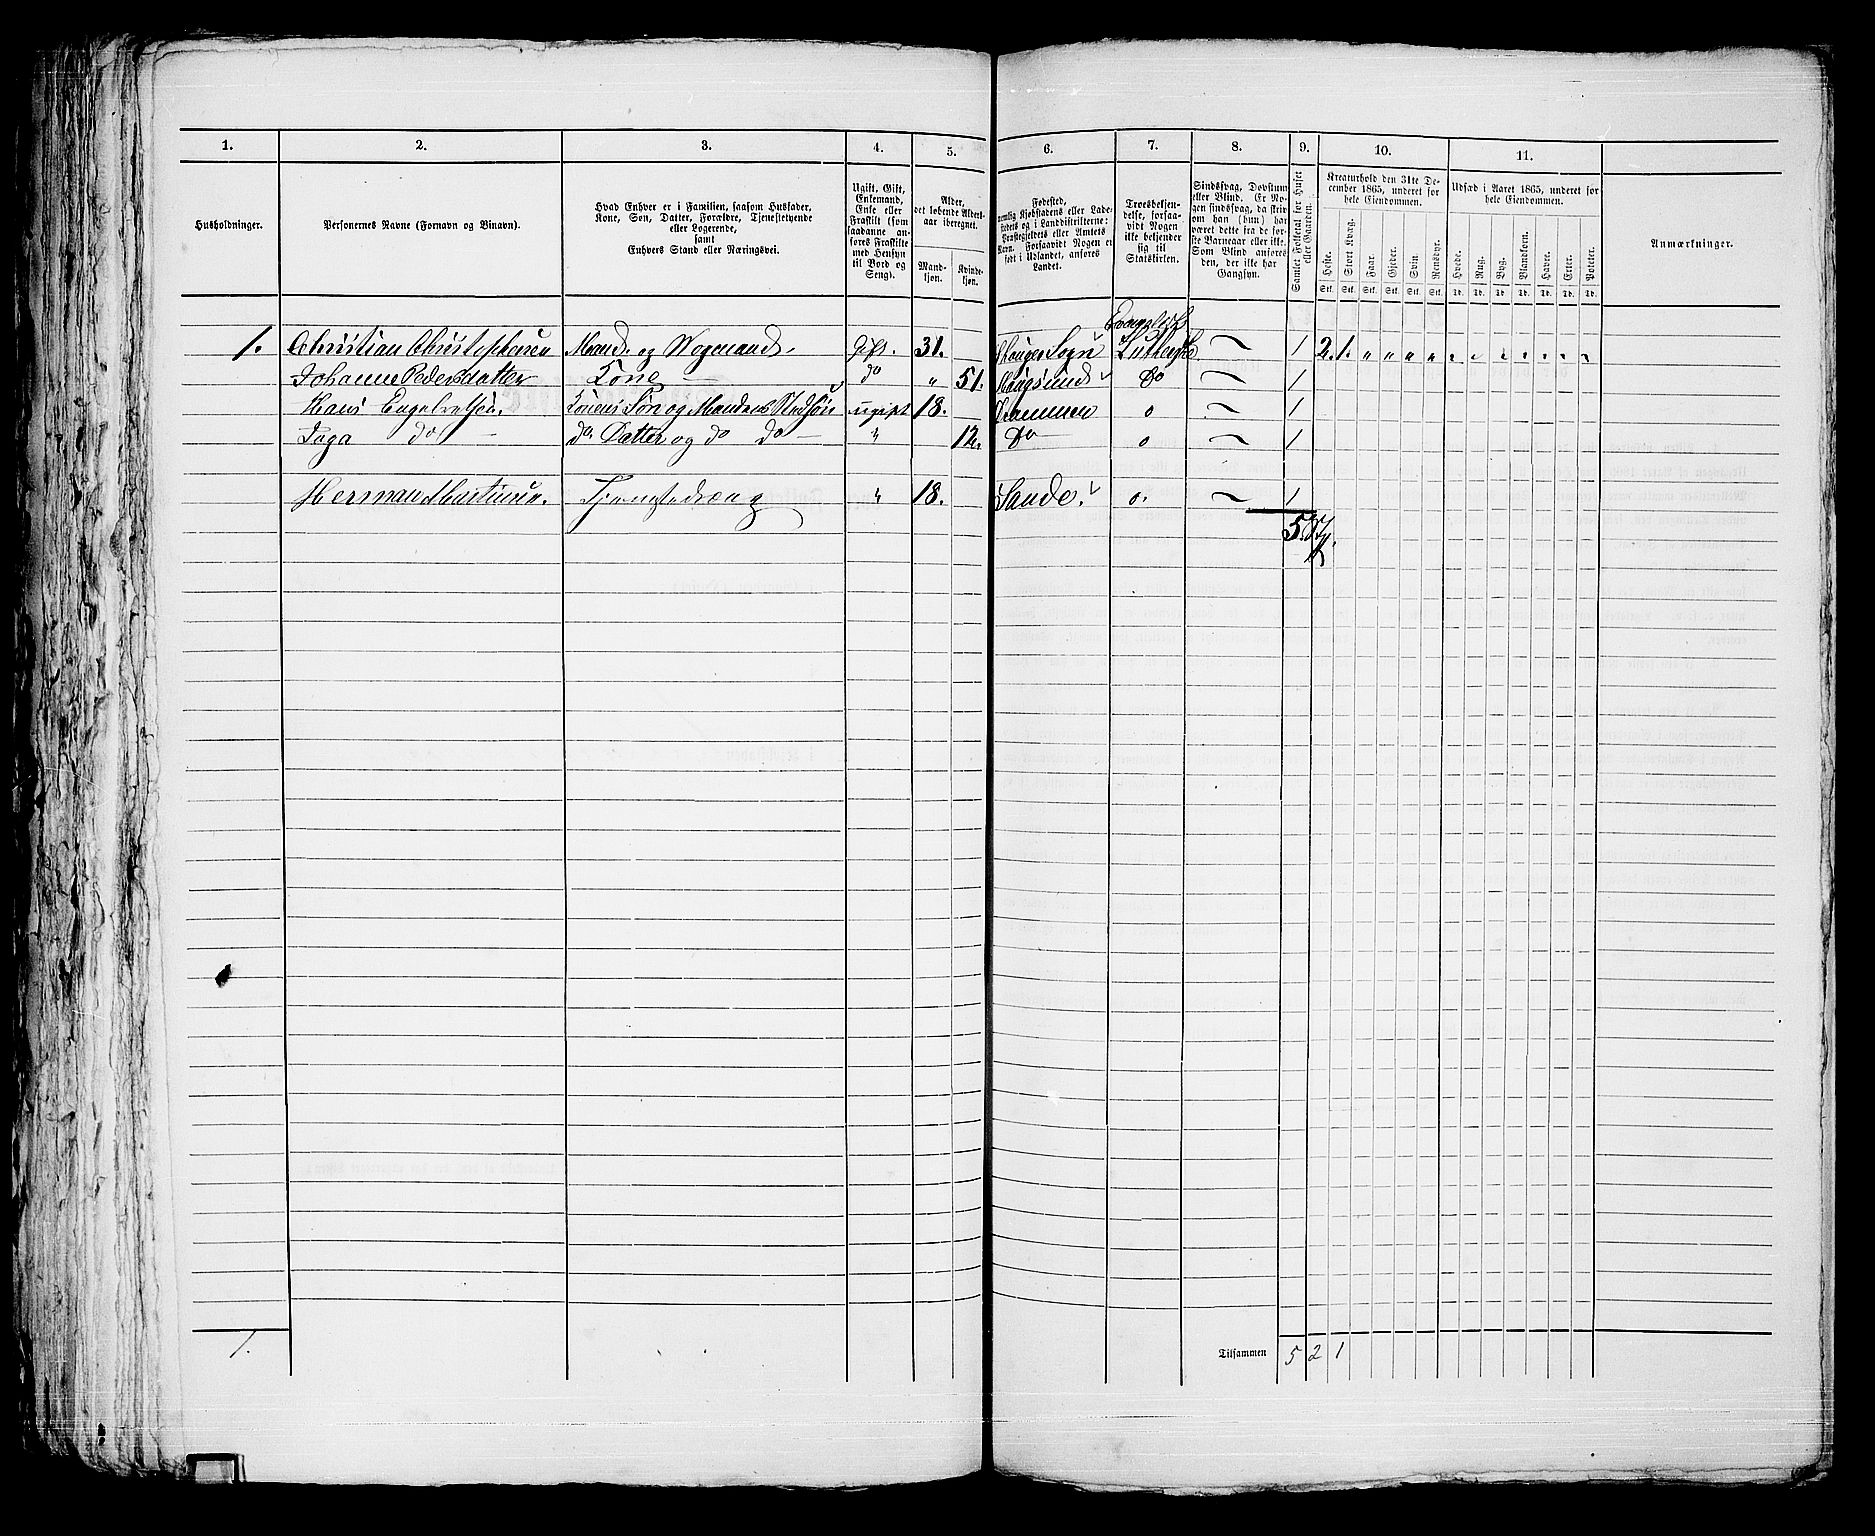 1. 2. 3. 4. 5. 6. 7. 8. 9. 10. 11.
Husholdninger.
Personernes Navne (Fornavn og Binavn).
Hvad Enhver er i Familien, saasom Husfader,
Kone, Søn, Datter, Forældre, Tjenestetyende
eller Logerende,
samt
Enhvers Stand eller Næringsvei.
Ugift, Gift,
Enkemand,
Enke eller
Fraskilt (som
saadanne an-
føres Fraskilte
med Hensyn
til Bord og
Seng).
Alder,
det løbende Alders-
aar iberegnet.
Mand-
kjøn.
Kvinde-
kjøn.
Fødested,
nemlig Kjøbstadens eller Lade-
stedets og i Landdistrikterne:
Præstegjeldets eller Amtets
Navn. Forsaavidt Nogen er
født i Udlandet, anføres
Landet.
Troesbekjen-
delse, forsaa-
vidt Nogen
ikke bekjender
sig til
Statskirken.
Sindssvag, Døvstum
eller Blind. Er No-
gen sindssvag, da skriv
om han (hun) har
været dette fra de før-
ste Barneaar eller ikke.
Som Blind anføres
den, der ikke har
Gangsyn.
Samlet Folketal for Huset
eller Gaarden.
Kreaturhold den 31te De-
cember 1865, underet for
hele Eiendommen.
Heste. Stort Kvæg. Faar. Gjeder. Svin. Rensdyr.
Stk. Stk. Stk. Stk. Stk. Stk.
Udsæd i Aaret 1865, underet for
hele Eiendommen.
Hvede. Rug. Byg. Blandkorn. Havre. Erter. Poteter.
Td. Td. Td. Td. Td. Td. Td.
Anmærkninger.
Evangelisk
1. Christian Christophersen Mand. og Vognmand. Gift. 31. Sogn Luthersk 1 2. 1. " " " "
Johanne Pedersdatter Kone do " 51. Haugsund do 1
Hans Engelretsen. Konens Søn og Mandens Stedsøn ugift 18. Drammen o 1
do do Datter og do do " 12. Do o 1
Herman Martinsen. Tjenestedreng " 18. Sande. o. 1
5.
1. Tilsammen 5 2 1